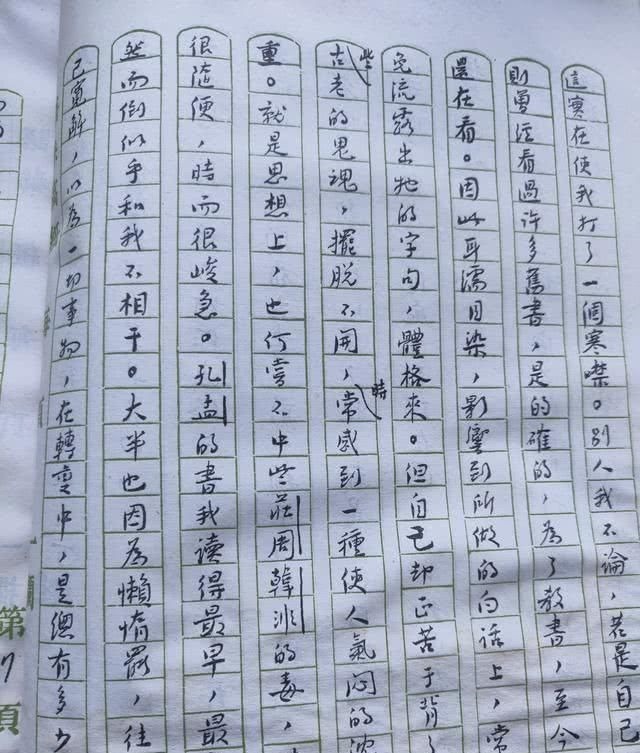 這實在使我打了一個寒噤。別人我不論，若是自己
則曾經看過許多舊書，是的確的，為了教書，至今
還在看。因此耳濡目染，影響到所做的白話上，常
免流露出牠的字句，體格來。但自己却正苦于背了
些古老的鬼魂，擺脫不開，時常感到一種使人氣悶的沈
重。就是思想上，也何嘗不中些莊周韓非的毒，
很隨便，時而很峻急。孔孟的書我讀得最早，最
然而倒似乎和我不相干。大半也因為懶惰罷，往
己寬解，以為一切事物，在轉變中，是總有多少
第7頁